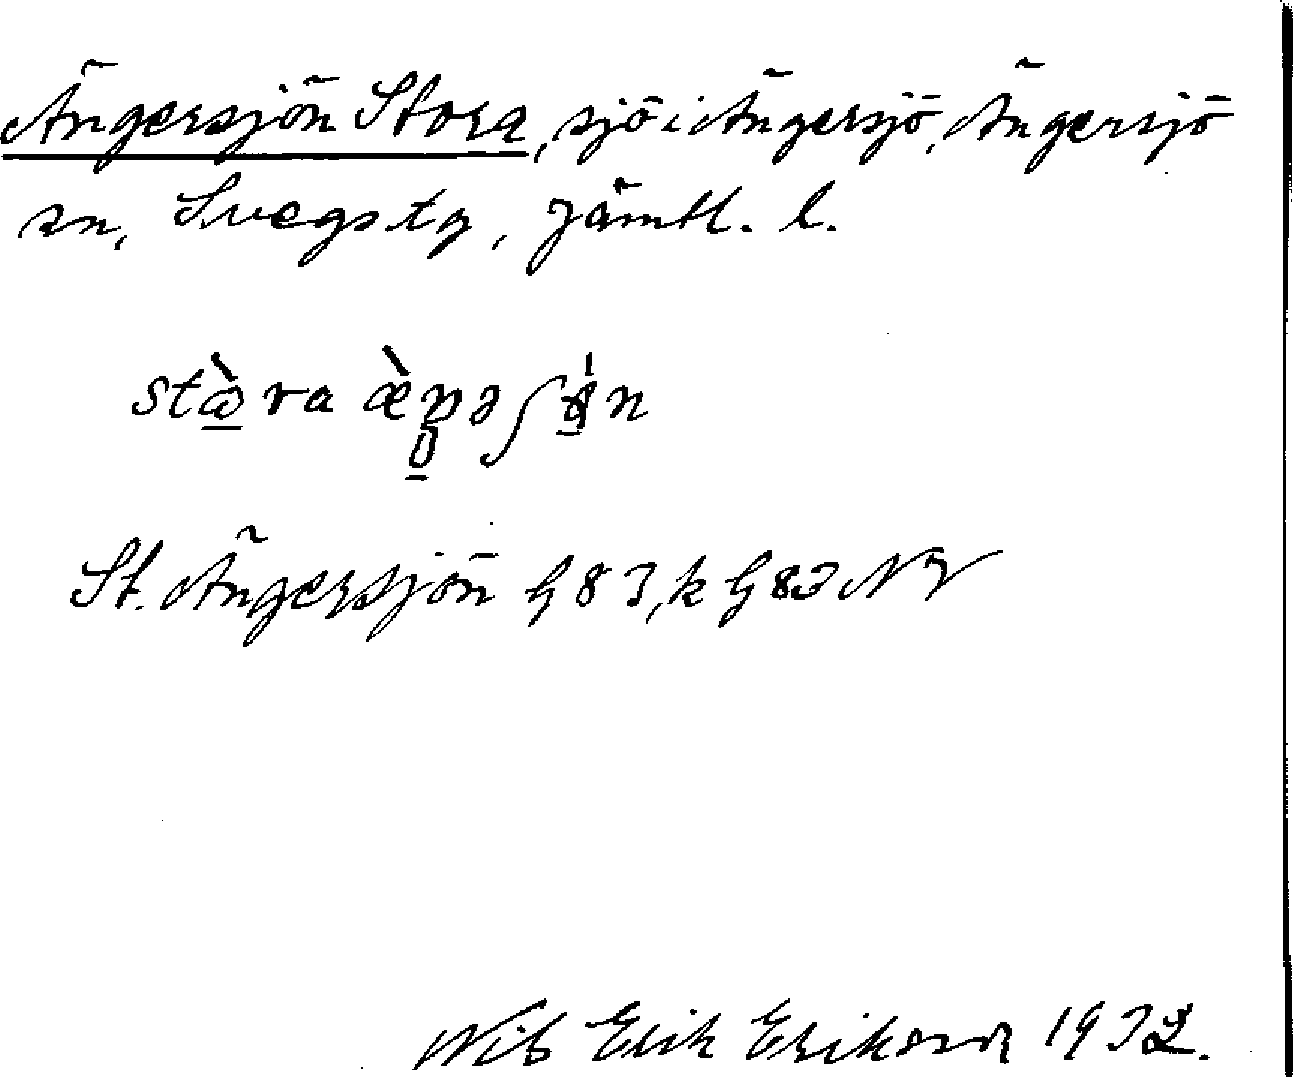 Ängersjön Stora, sjö i Ängersjö, Ängersjö
sn, Svegs tg, Jämtl. l.
St. Ängersjön G 83, k G 83 NV
Nils Erik Erikson 1932.